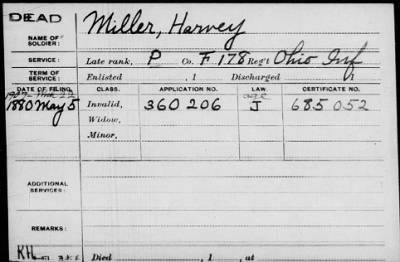 DEAD
Miller, Harvey
NAME OF
SOLDIER:
SERVICE: Late rank, P Co. F 178 Reg't Ohio Inf
TERM OF
SERVICE: Enlisted , 1 Discharged , 1
DATE OF FILING. CLASS. APPLICATION NO. LAW. CERTIFICATE NO.
1907
1880 May 5 Invalid, 360 206 J 685 052
Widow,
Minor,
ADDITIONAL
SERVICES:
REMARKS:
KH
Died , 1 , at